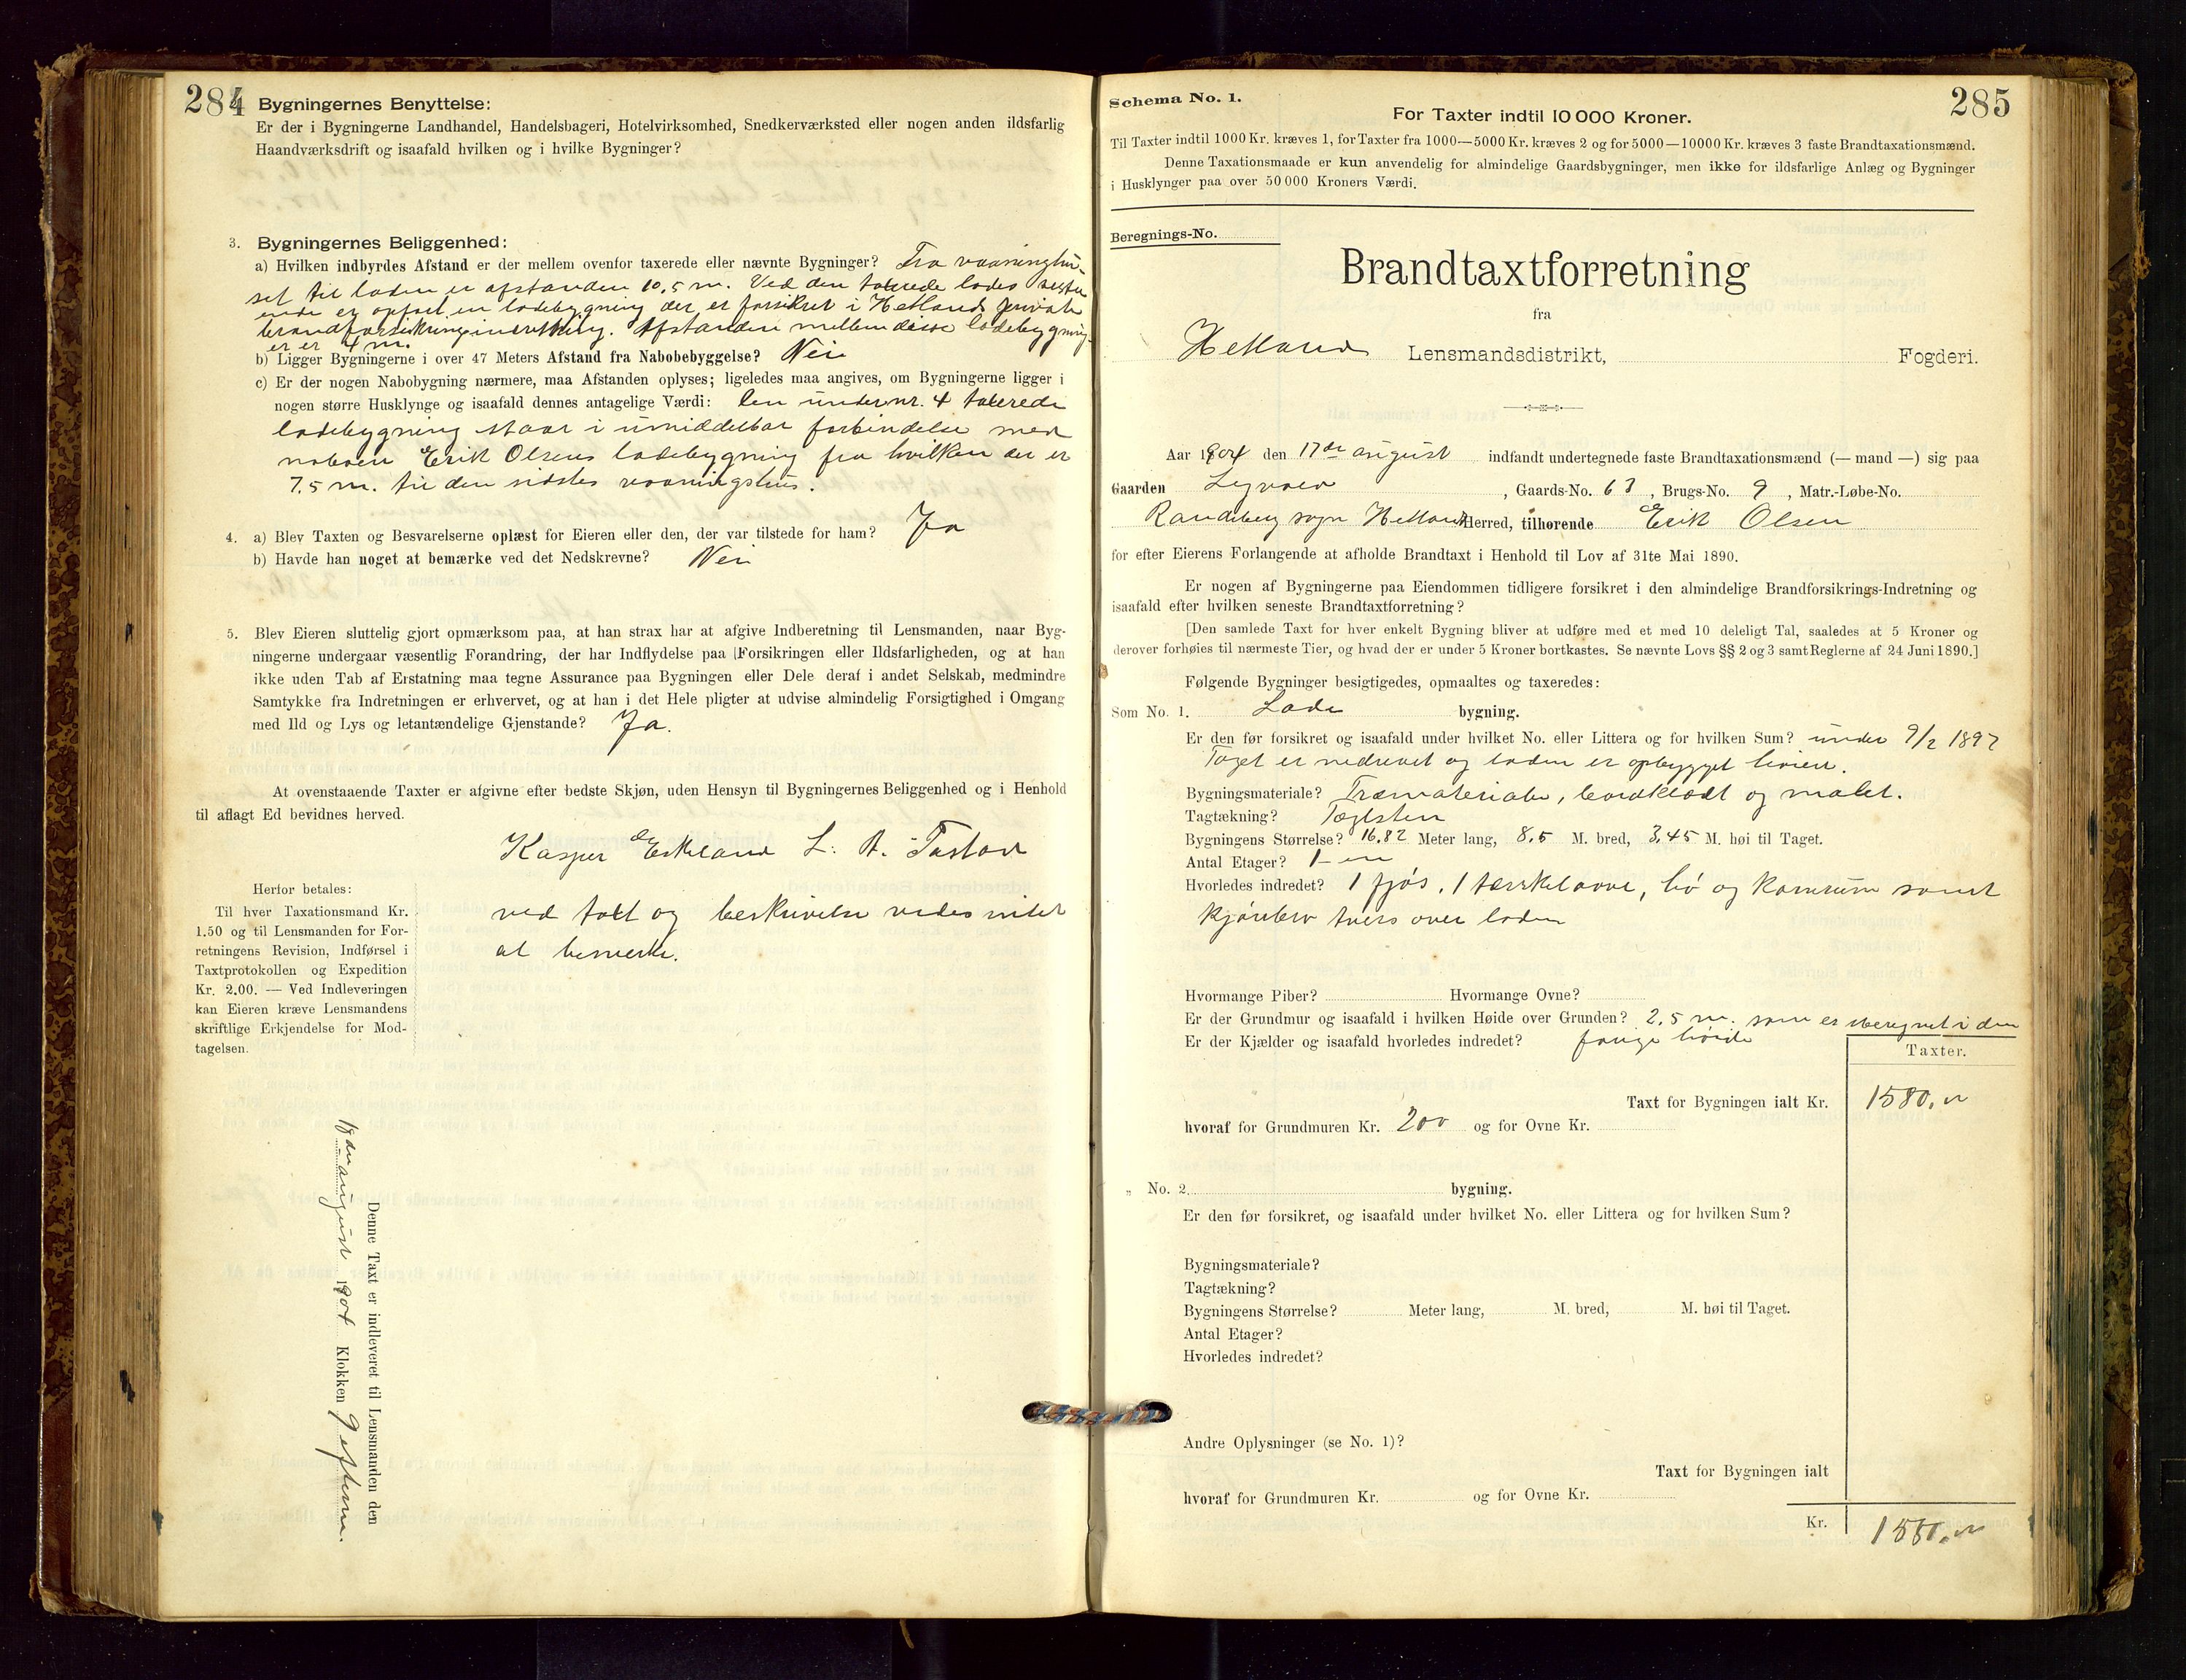 284
Bygningernes Benyttelse:
Er der i Bygningerne Landhandel, Handelsbageri, Hotelvirksomhed, Snedkerværksted eller nogen anden ildsfarlig
Haandværksdrift og isaafald hvilken og i hvilke Bygninger?
3. Bygningernes Beliggenhed:
a) Hvilken indbyrdes Afstand er der mellem ovenfor taxerede eller nævnte Bygninger? Fra vaaningshu-
set til laden er afstanden 10,5 m. Ved den taxerede lades
ende er opført en ladebygning der er forsikret i Hetlands private
brandforsikringsindretning. Afstanden mellem disse ladebygning-
er er 4 m.
b) Ligger Bygningerne i over 47 Meters Afstand fra Nabobebyggelse? Nei
c) Er der nogen Nabobygning nærmere, maa Afstanden oplyses; ligeledes maa angives, om Bygningerne ligger i
nogen større Husklynge og isaafald dennes antagelige Værdi: Den under nr. 4 taxerede
ladebygning staar i umiddelbar forbindelse med
naboen Erik Olsens ladebygning fra hvilken der er
7,5 m. til den sidstes vaaningshus.
4. a) Blev Taxten og Besvarelserne oplæst for Eieren eller den, der var tilstede for ham? Ja
b) Havde han noget at bemærke ved det Nedskrevne? Nei
5. Blev Eieren sluttelig gjort opmærksom paa, at han strax har at afgive Indberetning til Lensmanden, naar Byg-
ningerne undergaar væsentlig Forandring, der har Indflydelse paa Forsikringen eller Ildsfarligheden, og at han
ikke uden Tab af Erstatning maa tegne Assurance paa Bygningen eller Dele deraf i andet Selskab, medmindre
Samtykke fra Indretningen er erhvervet, og at han i det Hele pligter at udvise almindelig Forsigtighed i Omgang
med Ild og Lys og letantændelige Gjenstande? Ja.
At ovenstaaende Taxter er afgivne efter bedste Skjøn, uden Hensyn til Bygningernes Beliggenhed og i Henhold
til aflagt Ed bevidnes herved.
Kasper Eskeland L. A. Tastad
Herfor betales:
Til hver Taxationsmand Kr.
1.50 og til Lensmanden for For-
retningens Revision, Indførsel i
Taxtprotokollen og Expedition
Kr. 2.00. — Ved Indleveringen
kan Eieren kræve Lensmandens
skriftlige Erkjendelse for Mod-
tagelsen.
ved taxt og beskrivelse vides intet
at bemerke.
Denne Taxt er indleveret til Lensmanden den
18de august 1904 Klokken 9 efterm.
Schema No. 1.
285
For Taxter indtil 10000 Kroner.
Til Taxter indtil 1000 Kr. kræves 1, for Taxter fra 1000—5000 Kr. kræves 2 og for 5000—10000 Kr. kræves 3 faste Brandtaxationsmænd.
Denne Taxationsmaade er kun anvendelig for almindelige Gaardsbygninger, men ikke for ildsfarlige Anlæg og Bygninger
i Husklynger paa over 50000 Kroners Værdi.
Beregnings-No.
Brandtaxtforretning
fra
Hetland Lensmandsdistrikt, Fogderi.
Aar 1904 den 17de august indfandt undertegnede faste Brandtaxationsmænd (— mand —) sig paa
Gaarden , Gaards-No. 63, Brugs-No. 9, Matr.-Løbe-No.
Randeberg sogn Hetland Herred, tilhørende Erik Olsen
for efter Eierens Forlangende at afholde Brandtaxt i Henhold til Lov af 31te Mai 1890.
Er nogen af Bygningerne paa Eiendommen tidligere forsikret i den almindelige Brandforsikrings-Indretning og
isaafald efter hvilken seneste Brandtaxtforretning?
[Den samlede Taxt for hver enkelt Bygning bliver at udføre med et med 10 deleligt Tal, saaledes at 5 Kroner og
derover forhøies til nærmeste Tier, og hvad der er under 5 Kroner bortkastes. Se nævnte Lovs §§ 2 og 3 samt Reglerne af 24 Juni 1890.]
Følgende Bygninger besigtigedes, opmaaltes og taxeredes:
Som No. 1. Lade bygning.
Er den før forsikret og isaafald under hvilket No. eller Littera og for hvilken Sum? under 9/2 1897
Taget er nedrevet og laden er opbygget høiere.
Bygningsmateriale? Træmateriale, bordklædt og malet.
Tagtækning? Taglsten
Bygningens Størrelse? 16,82 Meter lang, 8,5 M. bred, 3,45 M. høi til Taget.
Antal Etager? 1 en
Hvorledes indredet? 1 fjøs, 1 tærskelaave, hø og kornrum samt
kjørebro tvers over laden
Hvormange Piber? Hvormange Ovne?
Er der Grundmur og isaafald i hvilken Høide over Grunden? 2,5 m. som er iberegnet i den
Er der Kjælder og isaafald hvorledes indredet? høide
Taxter.
Taxt for Bygningen ialt Kr. 1580,00
hvoraf for Grundmuren Kr. 200 og for Ovne Kr.
„ No. 2 bygning.
Er den før forsikret, og isaafald under hvilket No. eller Littera og for hvilken Sum?
Bygningsmateriale?
Tagtækning?
Bygningens Størrelse? Meter lang, M. bred, M. høi til Taget.
Antal Etager?
Hvorledes indredet?
Andre Oplysninger (se No. 1)?
Taxt for Bygningen ialt
hvoraf for Grundmuren Kr. og for Ovne Kr.
Kr. 1580,00